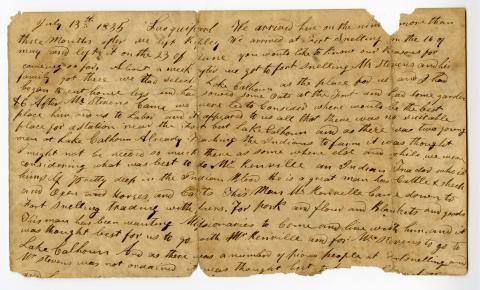 July 13th 1835 Lacquiparl We arrived her on the nine more than
three Months after we left Kinley We arrived at Fort Snelling on the 16 of
may and left it on the 23 of June you would like to know our reasons for
coming so far. About a week after we got to fort Snelling Mr Stevens and his
family got there we the Lake Calhoun as the place for us and I had
began to cut house logs and he sowed some oats at the fort and had some garden
&c After Mr Stevens came we were led to Consider where would be the best
place for us to Labor and it appeared to us all that there was no suitable
place for a station near the fort but Lake Calhoun and as there was two young
men at Lake Calhoun Already teaching the Indians to farm it was thought
might not be needed so much there as some where else and while we were
considering what was best to do Mr Renville an Indian trader who is
himself pretty deep in the Indian blood he is a great man has Cattle & sheep
and Oxen and horses, and This Man Mr Renville came down to
Fort Snelling trading with furs. For pork and flour and Blankets and goods
This man has been wanting Missionaries to come and live with him and it
was thought best for us to go with Mr Renville and for Mr Stevens to go to
Lake Calhoun And as there was a number of pious people at Fort Snelling and
Mr Stevens was not ordained it was thought best